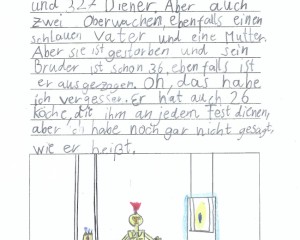 und 327 Diener. Aber auch
zwei Oberwachen, ebenfalls einen
schlauen Vater und eine Mutter.
Aber sie ist gestorben und sein
Bruder ist schon 36, ebenfalls ist
er ausgezogen. Oh, das habe
ich vergessen. Er hat auch 26
köche, die ihm an jedem Fest dienen,
aber ich habe noch gar nicht gesagt,
wie er heißt.